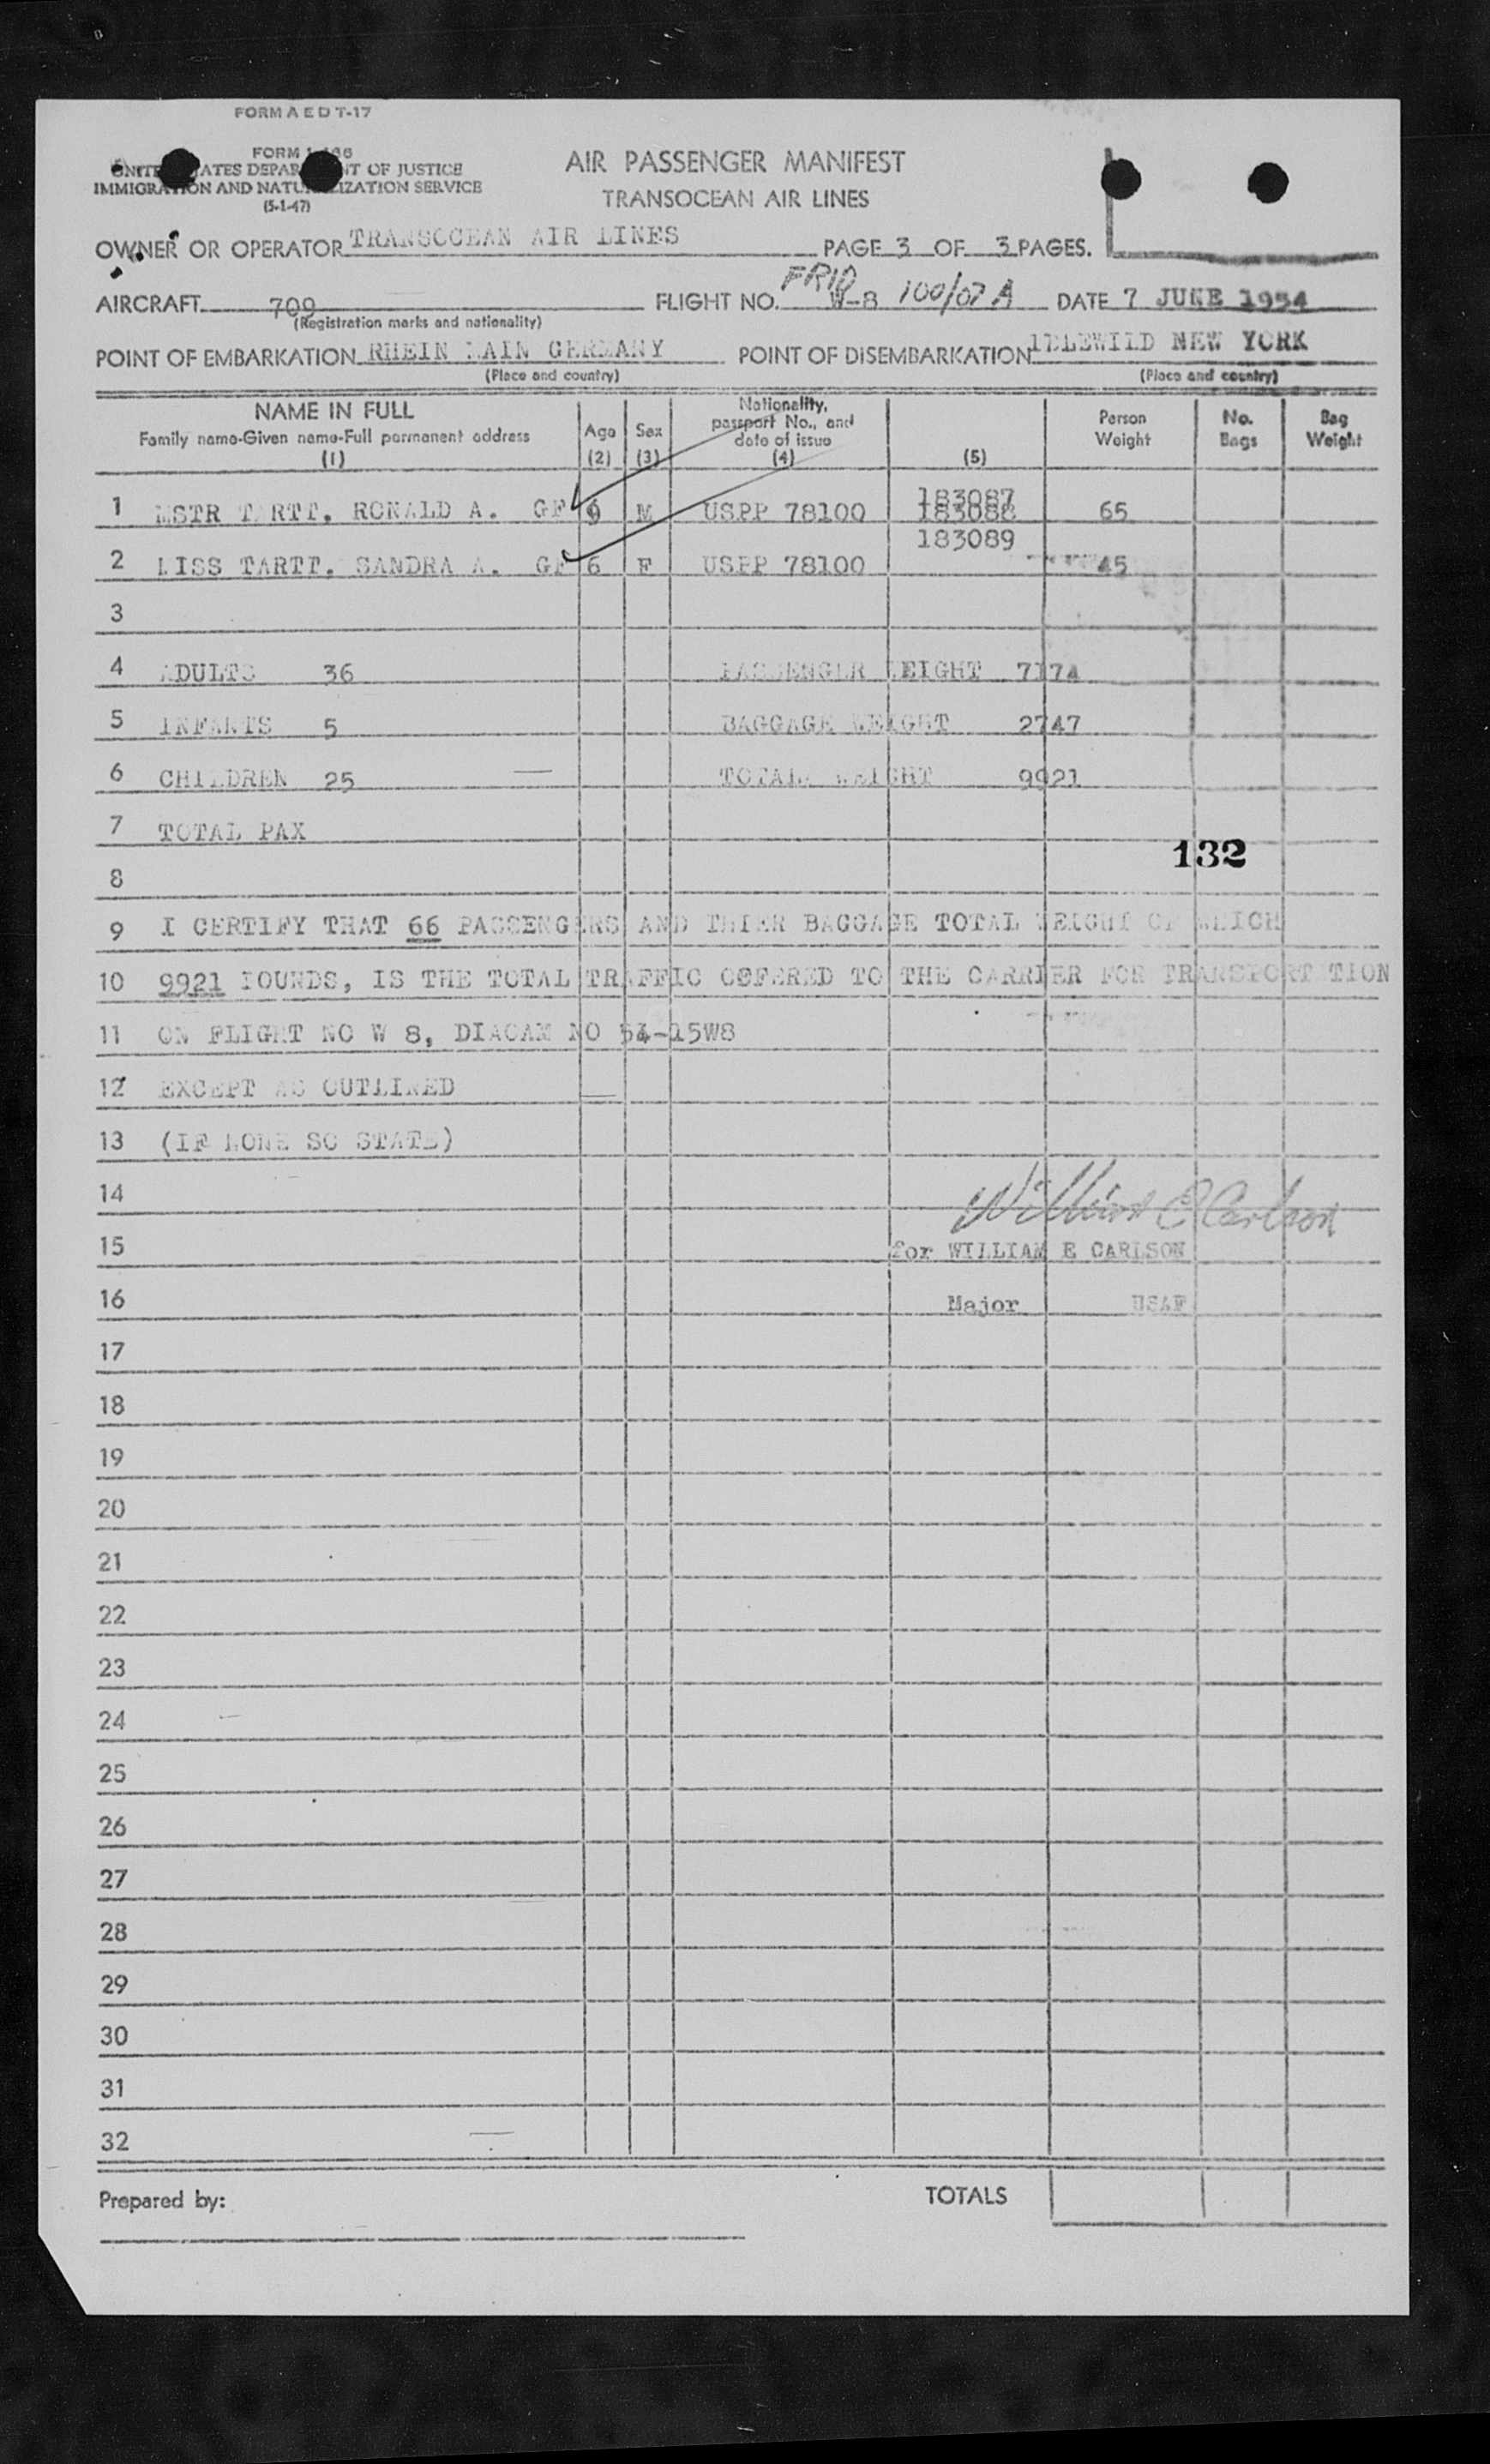 FORM A E D T-17
FORM
OF JUSTICE
IMMIGRATION AND NATURALIZATION SERVICE
(5-1-47)
AIR PASSENGER MANIFEST
TRANSOCEAN AIR LINES
OWNER OR OPERATOR TRANSOCEAN AIR LINES PAGE 3 OF 3 PAGES.
AIRCRAFT 709 FLIGHT NO. W-8 100/07 A DATE 7 JUNE 1954
(Registration marks and nationality)
POINT OF EMBARKATION RHEIN MAIN GERMANY POINT OF DISEMBARKATION IDLEWILD NEW YORK
(Place and country) (Place and country)
NAME IN FULL
Family name-Given name-Full permanent address
(1)
Age
(2)
Sex
(3)
Nationality,
passport No., and
date of issue
(4)
(5)
Person
Weight
No.
Bags
Bag
Weight
183087
1 MSTR TARTT, RONALD A. GF 9 M USPP 78100 183088 65
183089
2 MISS TARTT, SANDRA A. GF 6 F USPP 78100 45
3
4 ADULTS 36 PASSENGER WEIGHT 7174
5 INFANTS 5 BAGGAGE WEIGHT 2747
6 CHILDREN 25 TOTAL WEIGHT 9921
7 TOTAL PAX
132
8
9 I CERTIFY THAT 66 PASSENGERS AND THIER BAGGAGE TOTAL WEIGHT OF WHICH
10 9921 POUNDS, IS THE TOTAL TRAFFIC OFFERED TO THE CARRIER FOR TRANSPORTATION
11 ON FLIGHT NO W 8, DIACAM NO 54-15W8
12 EXCEPT AS OUTLINED
13 (IF NONE SO STATE)
14 William E Carlson
15 for WILLIAM E CARLSON
16 Major USAF
17
18
19
20
21
22
23
24
25
26
27
28
29
30
31
32
Prepared by: TOTALS